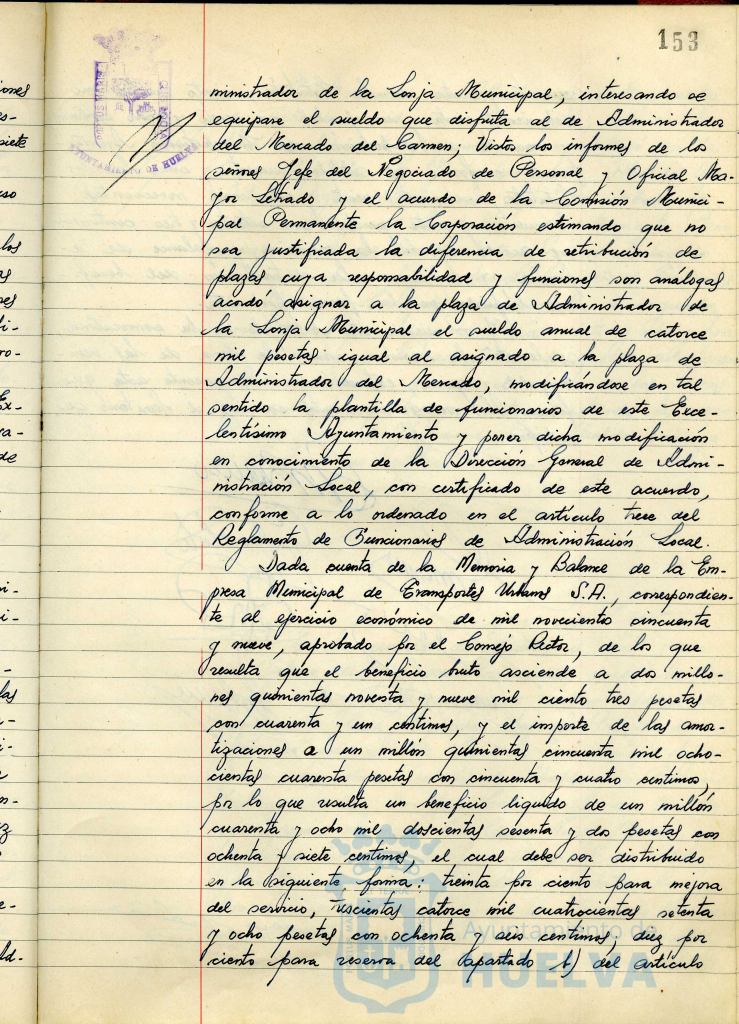 153
ministrador de la Lonja Municipal, interesando se
equipare el sueldo que disfruta al de Administrador
del Mercado del Carmen; Vistos los informes de los
señores Jefe del Negociado de Personal y Oficial Ma-
yor Letrado y el acuerdo de la Comisión Munici-
pal Permanente la Corporación estimando que no
sea justificada la diferencia de retribución de
plazas cuya responsabilidad y funciones son análogas
acordó asignar a la plaza de Administrador de
la Lonja Municipal el sueldo anual de catorce
mil pesetas igual al asignado a la plaza de
Administrador del Mercado, modificándose en tal
sentido la plantilla de funcionarios de este Exce-
lentísimo Ayuntamiento y poner dicha modificación
en conocimiento de la Dirección General de Admi-
nistración Local, con certificado de este acuerdo,
conforme a lo ordenado en el artículo trece del
Reglamento de Funcionarios de Administración Local.
Dada cuenta de la Memoria y Balance de la Em-
presa Municipal de Transportes Urbanos S.A., correspondien-
te al ejercicio económico de mil novecientos cincuenta
y nueve, aprobado por el Consejo Rector, de los que
resulta que el beneficio bruto asciende a dos millo-
nes quinientas noventa y nueve mil ciento tres pesetas
con cuarenta y un centimos, y el importe de las amor-
tizaciones a un millon quinientas cincuenta mil ocho-
cientas cuarenta pesetas con cincuenta y cuatro centimos,
por lo que resulta un beneficio liquido de un millón
cuarenta y ocho mil doscientas sesenta y dos pesetas con
ochenta y siete centimos, el cual debe ser distribuido
en la siguiente forma: treinta por ciento para mejora
del servicio, trescientas catorce mil cuatrocientas setenta
y ocho pesetas con ochenta y seis centimos; diez por
ciento para reserva del apartado b) del artículo
AYUNTAMIENTO DE HUELVA
Ayuntamiento de
HUELVA